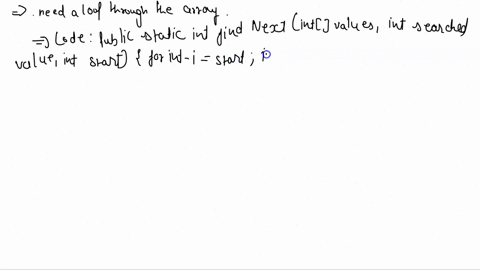 => need a loop through the array.
=> Code: Public static int find Next (int[] values, int searched
value, int start) { for int i = start ; i